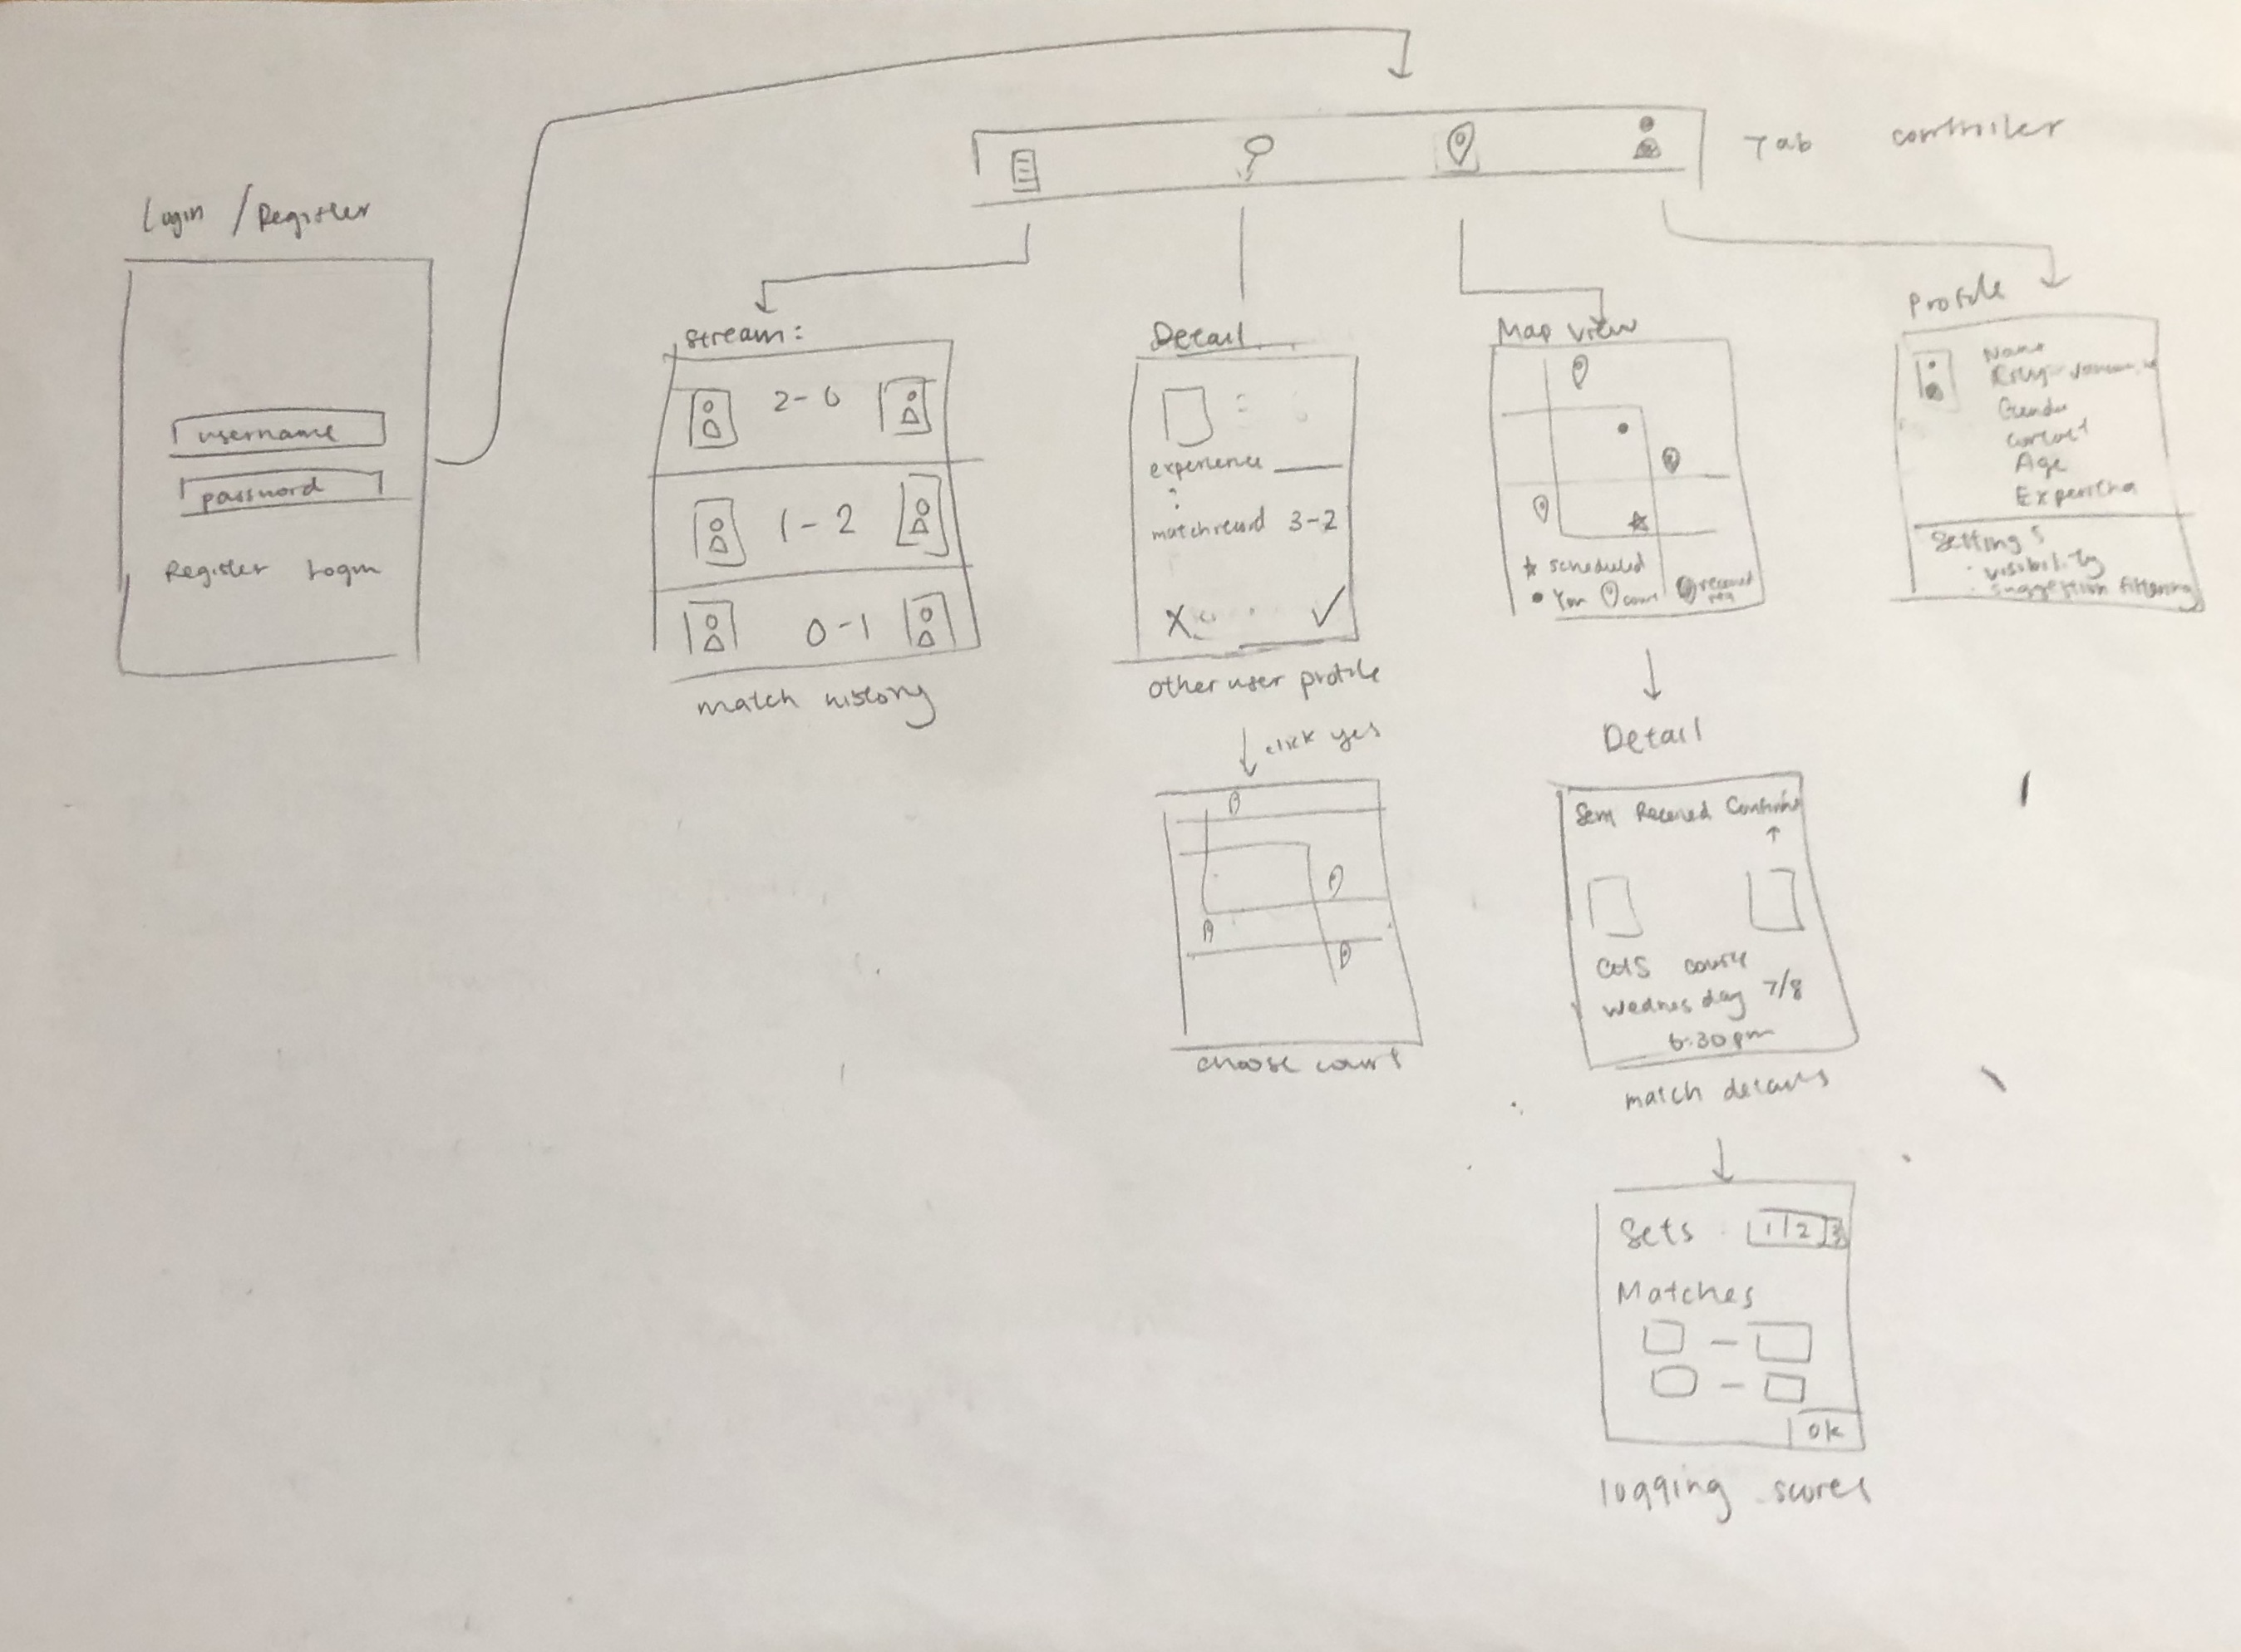 Tab controller
Login / Register
username
password
Register Login
Stream:
2-0
1-2
0-1
match history
Detail
experience
match record 3-2
X ✓
other user profile
click yes
choose court
Map view
★ scheduled
● You court received req
Detail
Sent Received Confirmed
courts
Wednesday 7/8
6:30pm
match details
Sets 1 2 3
Matches
–
–
OK
logging scores
Profile
Name
Gender
Contact
Age
Settings
visibility
suggestion filtering